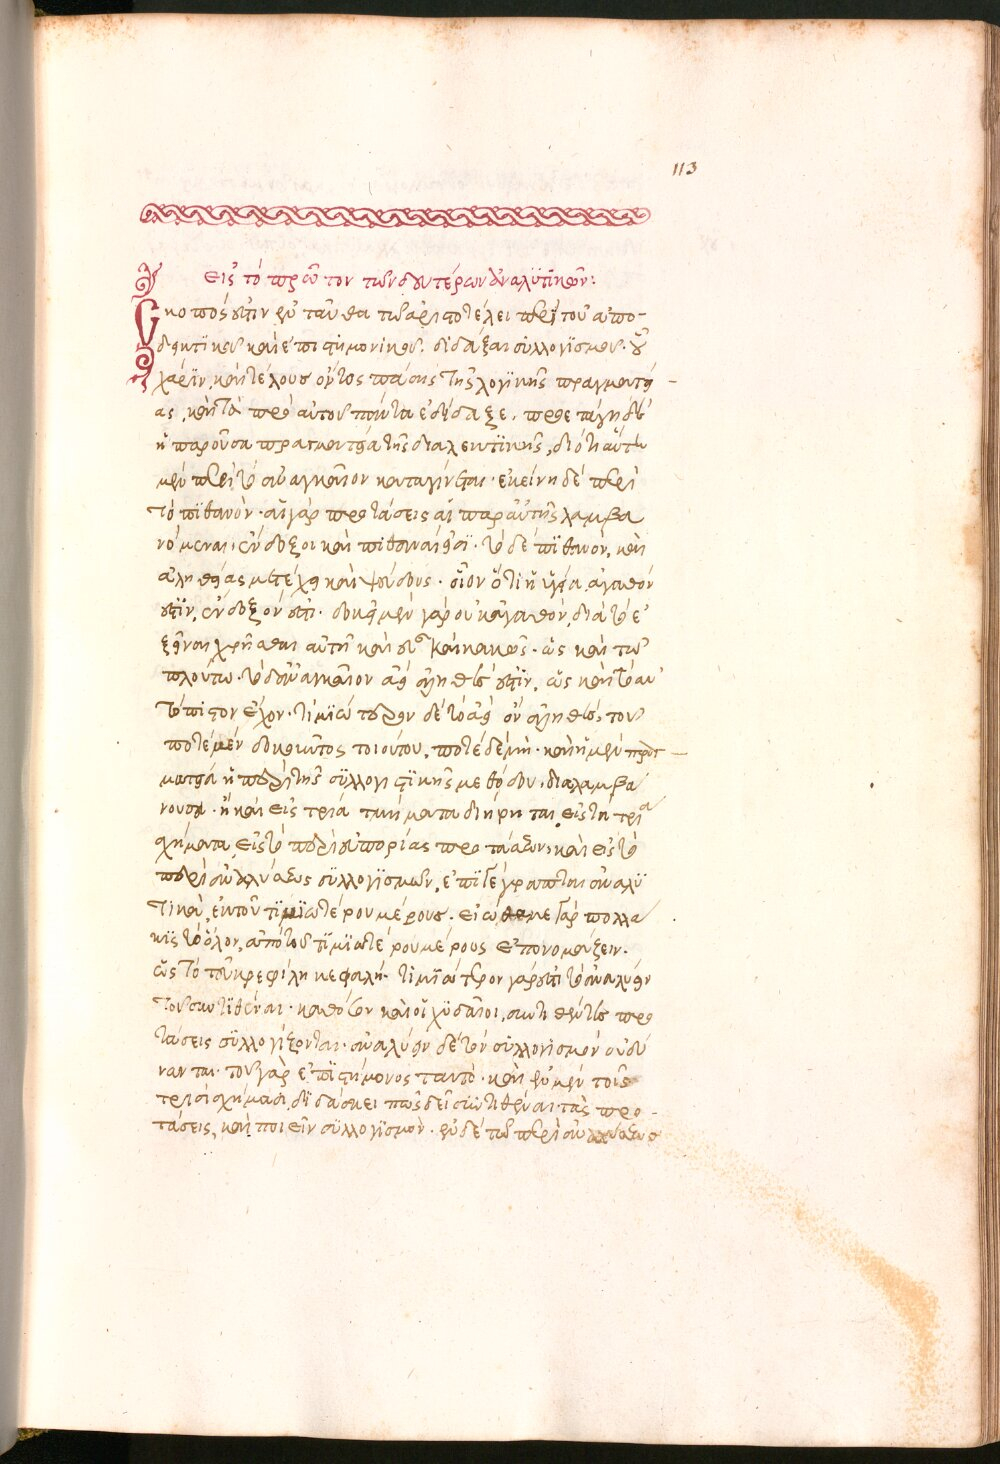 113
Εἰς τὸ πρῶτον τῶν δευτέρων ἀναλυτικῶν:
Σκοπός ἐστιν ἐνταῦθα τῷ ἀριστοτέλει περὶ τοῦ ἀπο-
δεικτικοῦ καὶ ἐπιστημονικοῦ διδάξαι συλλογισμοῦ. οὗ
χάριν, καὶ τέλους ὄντος πάσης τῆς λογικῆς πραγματεί-
ας, καὶ τὰ πρὸ αὐτοῦ πάντα ἐδίδαξε. προετάγη δὲ
ἡ παροῦσα πραγματεία τῆς διαλεκτικῆς, διότι αὕτη
μὲν περὶ τὸ ἀναγκαῖον καταγίνεται. ἐκείνη δὲ περὶ
τὸ πιθανόν. αἱ γὰρ προτάσεις αἱ παρ' αὐτῆς λαμβα
νόμεναι, ἔνδοξοι καὶ πιθαναί εἰσι. τὸ δὲ πιθανὸν, καὶ
ἀληθείας μετέχει καὶ ψεύδους. οἷον ὅτι ἡ ὑγεία ἀγαθόν
ἐστιν, ἔνδοξόν ἐστι. δοκεῖ μὲν γὰρ οὐκ ἀγαθὸν, διὰ τὸ ἐ
ξεῖναι χρῆσθαι αὐτῇ καὶ εὖ καὶ κακῶς. ὡς καὶ τῷ
πλούτῳ. τὸ δ' ἀναγκαῖον ἀεὶ ἀληθές ἐστιν, ὡς καὶ τὸ αὐ
τόπιστον ἔχον. τιμιώτερον δὲ τὸ ἀεὶ ὂν ἀληθὲς, τοῦ
ποτὲ μὲν δοκοῦντος τοιούτου, ποτὲ δὲ μή. καὶ ἡ μὲν πραγ-
ματεία ἡ περὶ τῆς συλλογιστικῆς μεθόδου διαλαμβά
νουσα. ἢ καὶ εἰς τρία τμήματα διῄρηται, εἰς τὰ τρία
σχήματα, εἰς τὸ περὶ εὐπορίας προτάσεων, καὶ εἰς τὸ
περὶ ἀναλύσεως συλλογισμῶν, ἐπιγέγραπται ἀναλυ
τικὰ, ἐκ τοῦ τιμιωτέρου μέρους. εἰώθαμεν γὰρ πολλά
κις τὸ ὅλον, ἀπὸ τοῦ τιμιωτέρου μέρους ἐπονομάζειν.
ὡς τὸ τεῦκρε φίλη κεφαλή. τιμιώτερον γάρ ἐστι τὸ ἀναλύειν
τοῦ συντιθέναι. καθόσον καὶ οἱ χυδαῖοι, συντιθέντες προ
τάσεις συλλογίζονται. ἀναλύειν δὲ τὸν συλλογισμὸν οὐ δύ
νανται. τοῦ γὰρ ἐπιστήμονος ταυτὸ. καὶ ἐν μὲν τοῖς
τρισὶ σχήμασι, διδάσκει πῶς δεῖ συντιθέναι τὰς προ-
τάσεις, καὶ ποιεῖν συλλογισμόν. ἐν δὲ τῷ περὶ ἀναλύσεως